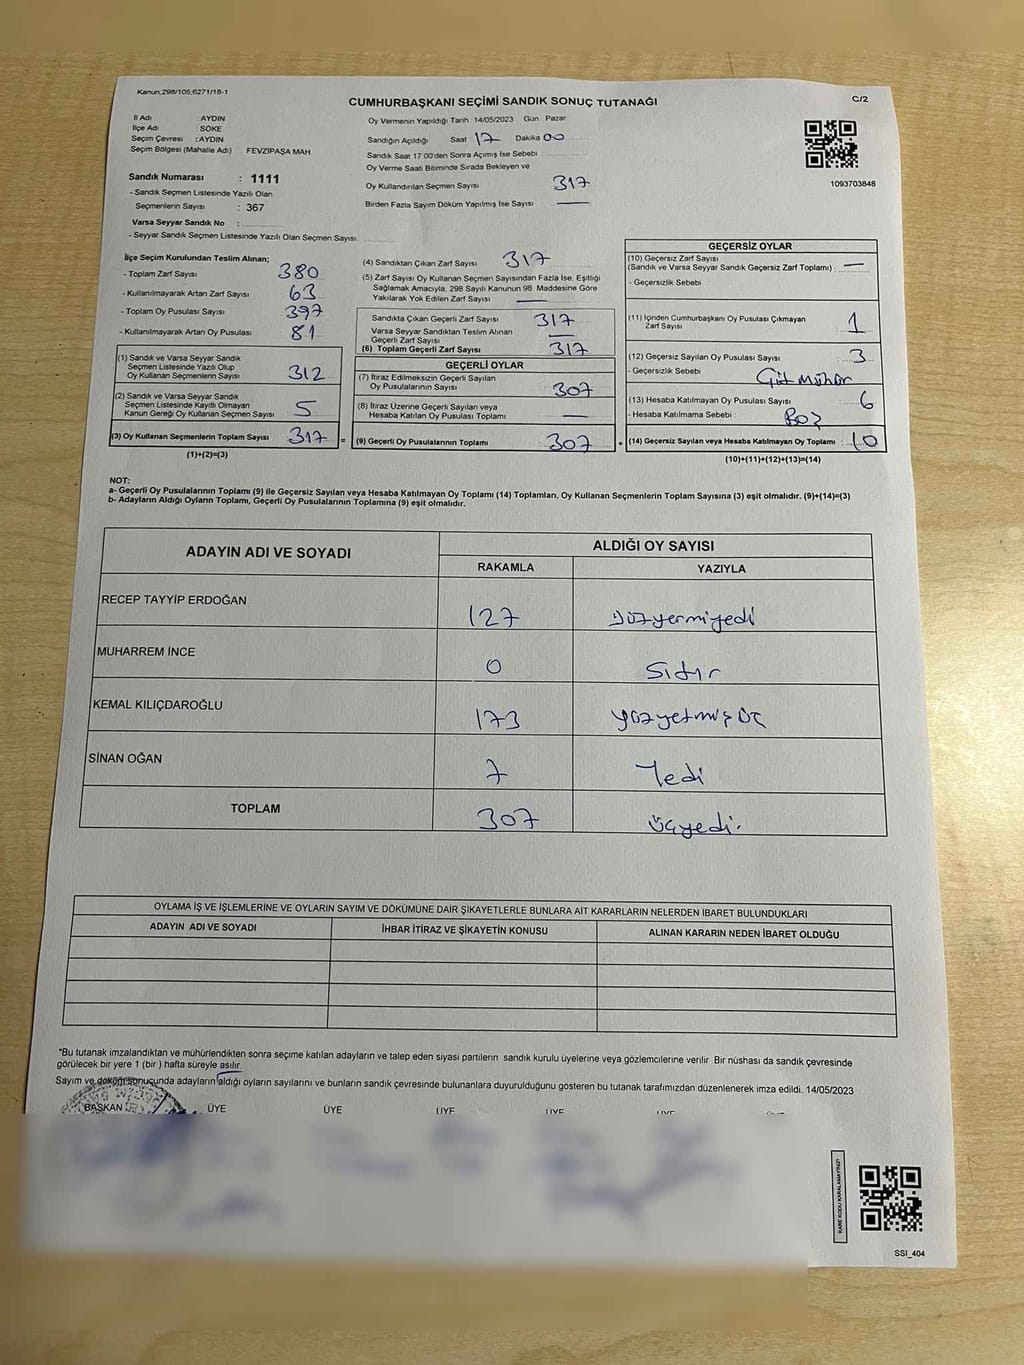 Kanun,298/105,6271/18-1
CUMHURBAŞKANI SEÇİMİ SANDIK SONUÇ TUTANAĞI
C/2
İl Adı AYDIN
İlçe Adı SÖKE
Seçim Çevresi : AYDIN
Seçim Bölgesi (Mahalle Adı) : FEVZİPAŞA MAH.
Sandık Numarası : 1111
- Sandık Seçmen Listesinde Yazılı Olan
Seçmenlerin Sayısı : 367
Varsa Seyyar Sandık No :
- Seyyar Sandık Seçmen Listesinde Yazılı Olan Seçmen Sayısı:
Oy Vermenin Yapıldığı Tarih :14/05/2023 Gün : Pazar
Sandığın Açıldığı Saat 17 Dakika 00
Sandık Saat 17:00'den Sonra Açımış İse Sebebi :
Oy Verme Saati Bitiminde Sırada Bekleyen ve
Oy Kullandırılan Seçmen Sayısı 317
Birden Fazla Sayım Döküm Yapılmış İse Sayısı —
1093703848
İlçe Seçim Kurulundan Teslim Alınan;
- Toplam Zarf Sayısı 380
- Kullanılmayarak Artan Zarf Sayısı 63
- Toplam Oy Pusulası Sayısı 397
- Kullanılmayarak Artan Oy Pusulası 81
(1) Sandık ve Varsa Seyyar Sandık
Seçmen Listesinde Yazılı Olup
Oy Kullanan Seçmenlerin Sayısı 312
(2) Sandık ve Varsa Seyyar Sandık
Seçmen Listesinde Kayıtlı Olmayan
Kanun Gereği Oy Kullanan Seçmen Sayısı 5
(3) Oy Kullanan Seçmenlerin Toplam Sayısı 317 =
(1)+(2)=(3)
(4) Sandıktan Çıkan Zarf Sayısı 317
(5) Zarf Sayısı Oy Kullanan Seçmen Sayısından Fazla İse, Eşitliği
Sağlamak Amacıyla; 298 Sayılı Kanunun 98. Maddesine Göre
Yakılarak Yok Edilen Zarf Sayısı —
Sandıkta Çıkan Geçerli Zarf Sayısı 317
Varsa Seyyar Sandıktan Teslim Alınan
Geçerli Zarf Sayısı —
(6) Toplam Geçerli Zarf Sayısı 317
GEÇERLİ OYLAR
(7) İtiraz Edilmeksizin Geçerli Sayılan
Oy Pusulalarının Sayısı 307
(8) İtiraz Üzerine Geçerli Sayılan veya
Hesaba Katılan Oy Pusulası Toplamı —
(9) Geçerli Oy Pusulalarının Toplamı 307 +
GEÇERSİZ OYLAR
(10) Geçersiz Zarf Sayısı
(Sandık ve Varsa Seyyar Sandık Geçersiz Zarf Toplamı) : —
- Geçersizlik Sebebi
(11) İçinden Cumhurbaşkanı Oy Pusulası Çıkmayan
Zarf Sayısı 1
(12) Geçersiz Sayılan Oy Pusulası Sayısı 3
- Geçersizlik Sebebi Çift mühür
(13) Hesaba Katılmayan Oy Pusulası Sayısı 6
- Hesaba Katılmama Sebebi : Boz
(14) Geçersiz Sayılan veya Hesaba Katılmayan Oy Toplamı 10
(10)+(11)+(12)+(13)=(14)
NOT:
a- Geçerli Oy Pusulalarının Toplamı (9) ile Geçersiz Sayılan veya Hesaba Katılmayan Oy Toplamı (14) Toplamları, Oy Kullanan Seçmenlerin Toplam Sayısına (3) eşit olmalıdır. (9)+(14)=(3)
b- Adayların Aldığı Oyların Toplamı, Geçerli Oy Pusulalarının Toplamına (9) eşit olmalıdır.
ADAYIN ADI VE SOYADI
ALDIĞI OY SAYISI
RAKAMLA YAZIYLA
RECEP TAYYİP ERDOĞAN 127 yüzyermiyedi
MUHARREM İNCE 0 Sıfır
KEMAL KILIÇDAROĞLU 173 yüzyetmişüç
SİNAN OĞAN 7 Yedi
TOPLAM 307 üçyedi.
OYLAMA İŞ VE İŞLEMLERİNE VE OYLARIN SAYIM VE DÖKÜMÜNE DAİR ŞİKAYETLERLE BUNLARA AİT KARARLARIN NELERDEN İBARET BULUNDUKLARI
ADAYIN ADI VE SOYADI İHBAR İTİRAZ VE ŞİKAYETİN KONUSU ALINAN KARARIN NEDEN İBARET OLDUĞU
*Bu tutanak imzalandıktan ve mühürlendikten sonra seçime katılan adayların ve talep eden siyasi partilerin sandık kurulu üyelerine veya gözlemcilerine verilir. Bir nüshası da sandık çevresinde
görülecek bir yere 1 (bir ) hafta süreyle asılır.
Sayım ve döküm sonucunda adayların aldığı oyların sayılarını ve bunların sandık çevresinde bulunanlara duyurulduğunu gösteren bu tutanak tarafımızdan düzenlenerek imza edildi. 14/05/2023
BAŞKAN ÜYE ÜYE ÜYE ÜYE
KARE KODU KARALAMAYINIZ!
SSI_404